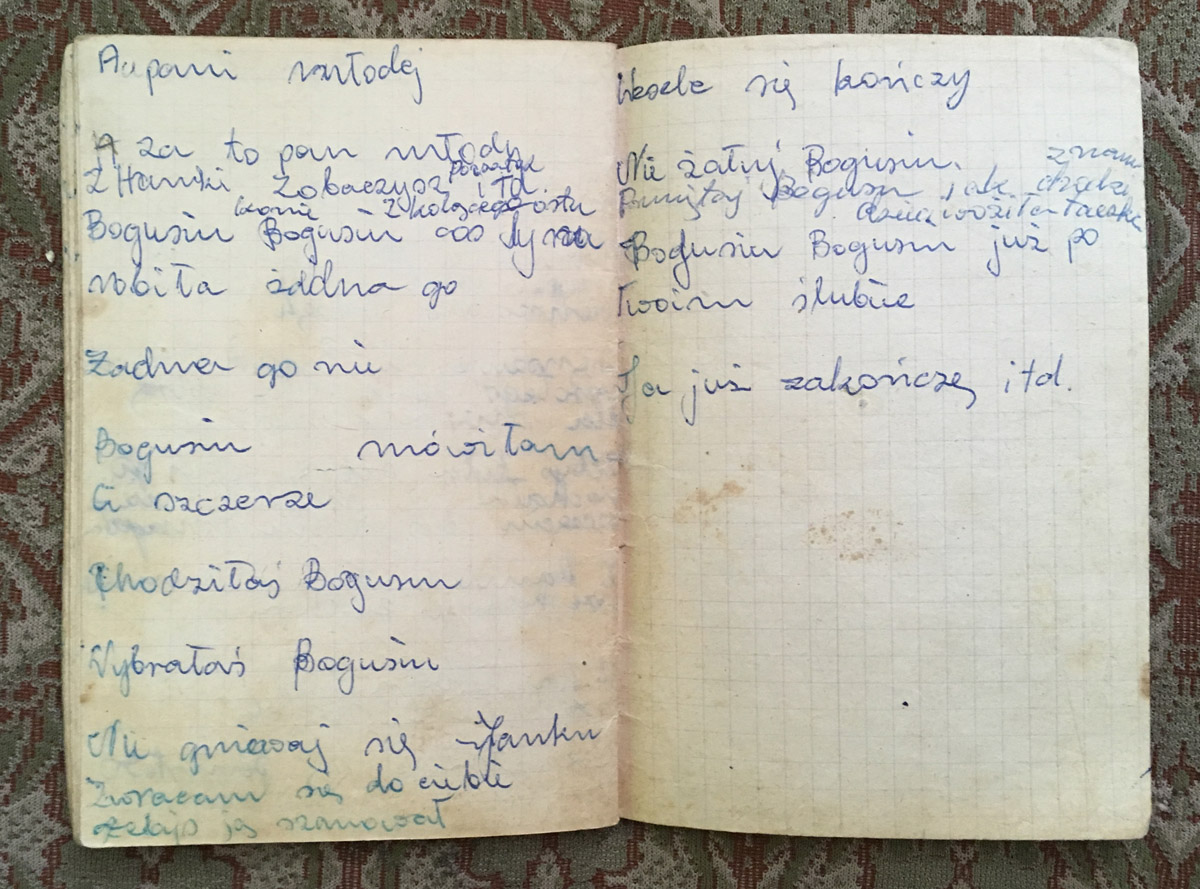 A u pani młodej
A za to pan młody
początek
Z Hanki Zobaczysz i td.
konie z kolącego ostu
Bogusiu Bogusiu coś ty
robiła żadna go
Żadna go nie
Bogusiu mówiłam
Ci szczerze
Chodziłaś Bogusiu
Wybrałaś Bogusiu
Nie gniewaj się Janku
Zwracam się do ciebie
żebyś ją szanował
Wesele się kończy
Nie żałuj Bogusiu
z nami
Pamiętaj Bogusiu jak
woziła taczkę
Bogusiu Bogusiu już po
twoim ślubie
Ja już zakończę itd.